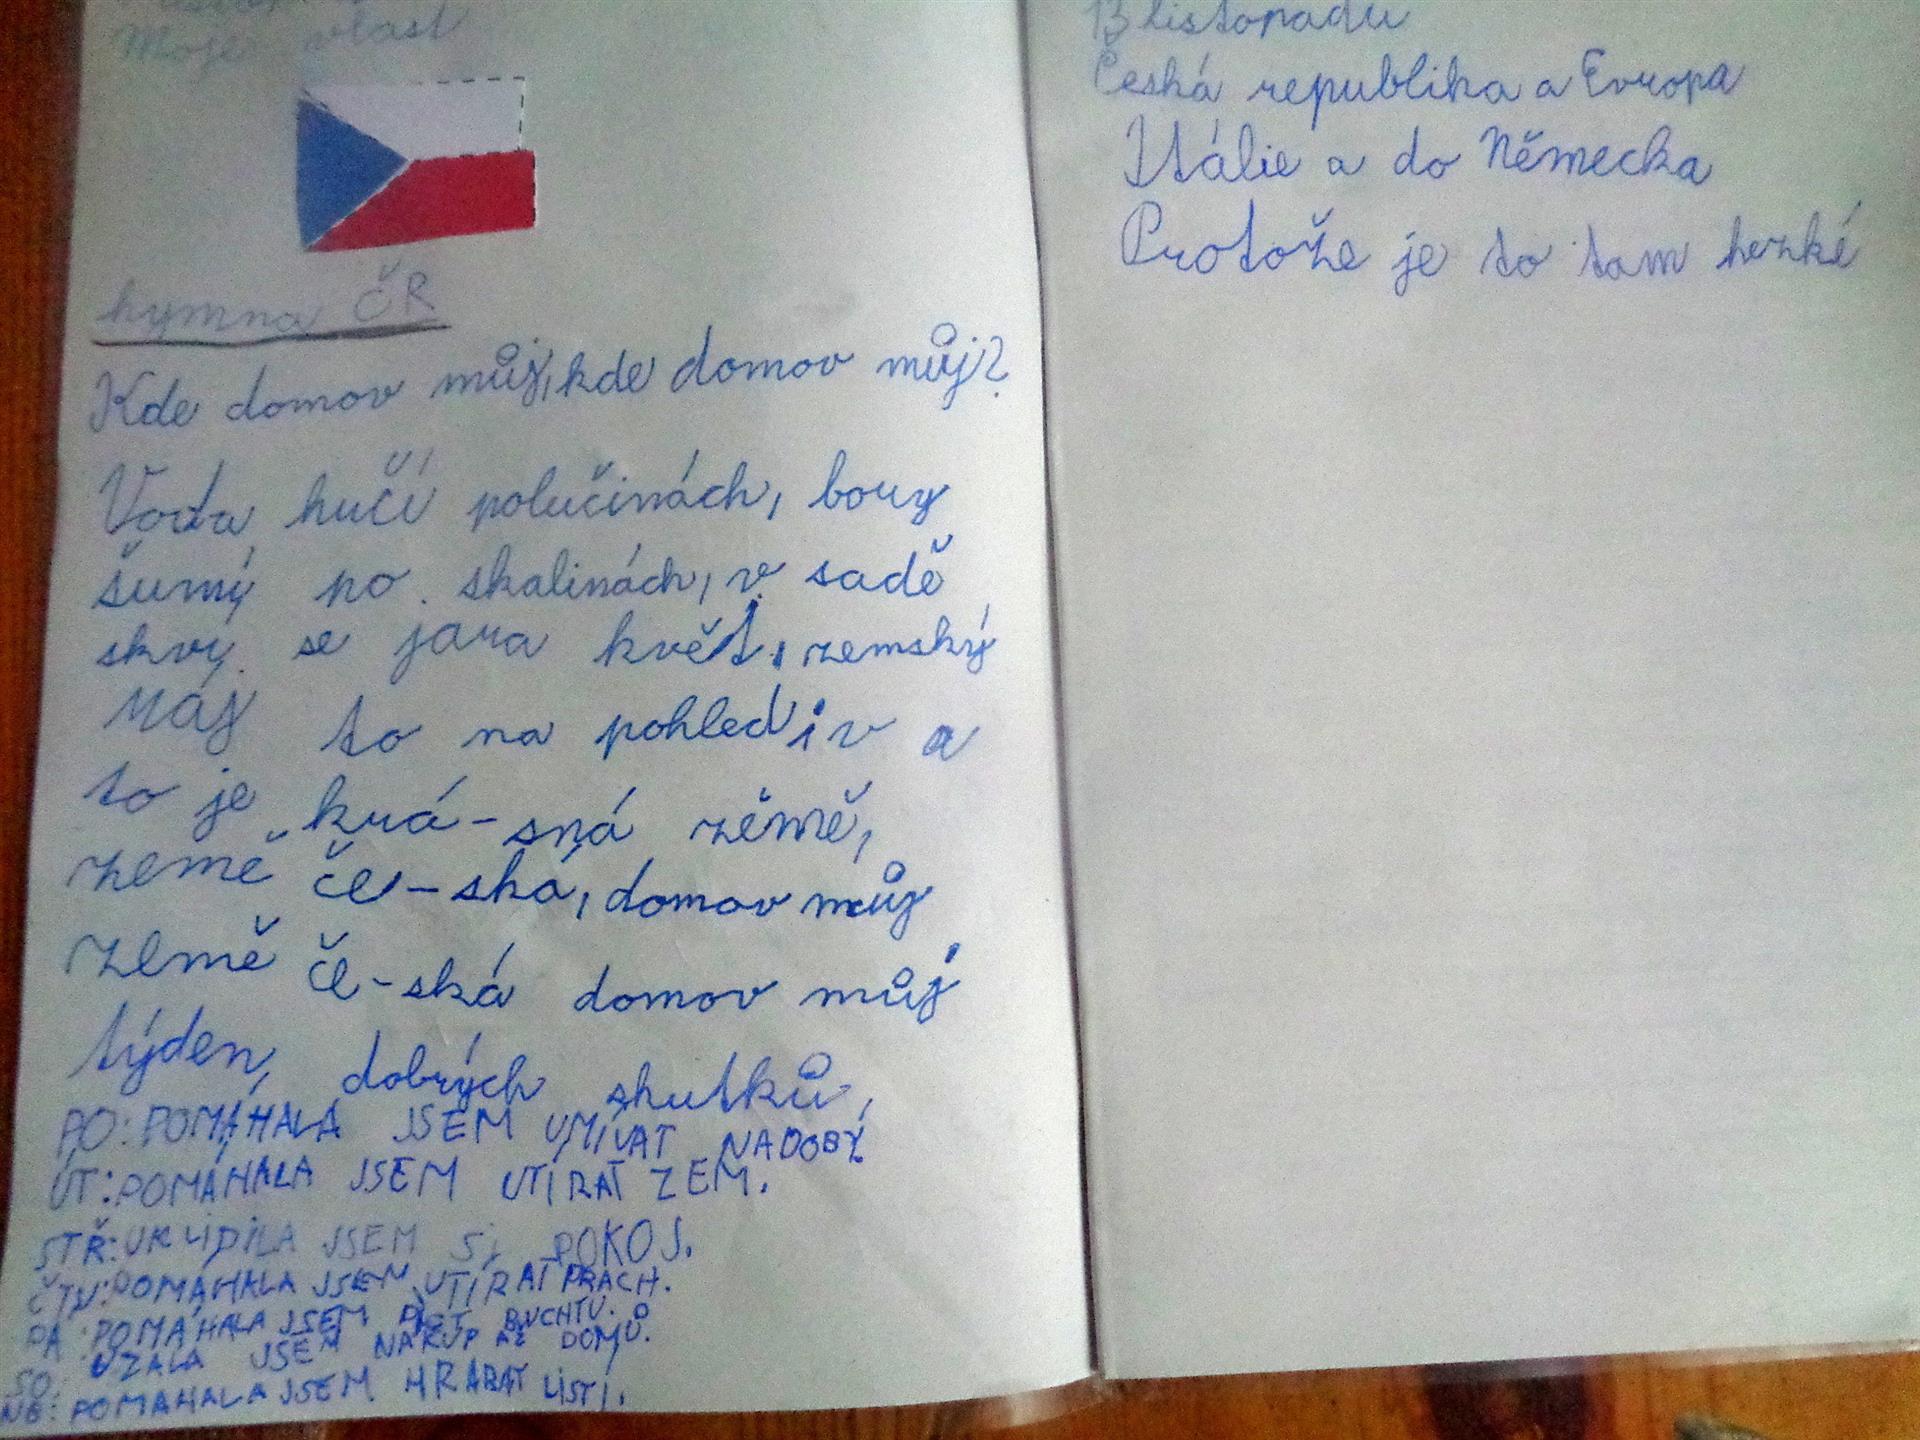 Moje vlast
hymna ČR
Kde domov můj, kde domov můj?
Voda hučí polučinách, bory
šumý po skalinách, v sadě
skvý se jara květ, zemský
ráj to na pohled i v a
to je krá-sná zěmě,
země če-ská, domov můj
země če-ská domov můj
týden, dobrých skutků,
PO: POMÁHALA JSEM UMÍVAT NADOBÝ
ÚT: POMÁHALA JSEM UTÍRAT ZEM.
STŘ: UKLIDILA JSEM SI POKOJ.
ČTV: POMÁHALA JSEM UTÍRAT PRACH.
PÁ: POMÁHALA JSEM PÉCT BUCHTU.
SO: VZALA JSEM NÁKUP AŽ DOMŮ.
NE: POMAHALA JSEM HRABAT LISTÍ.
13 listopadu
Česká republika a Evropa
Itálie a do Německa
Protože je to tam hezké